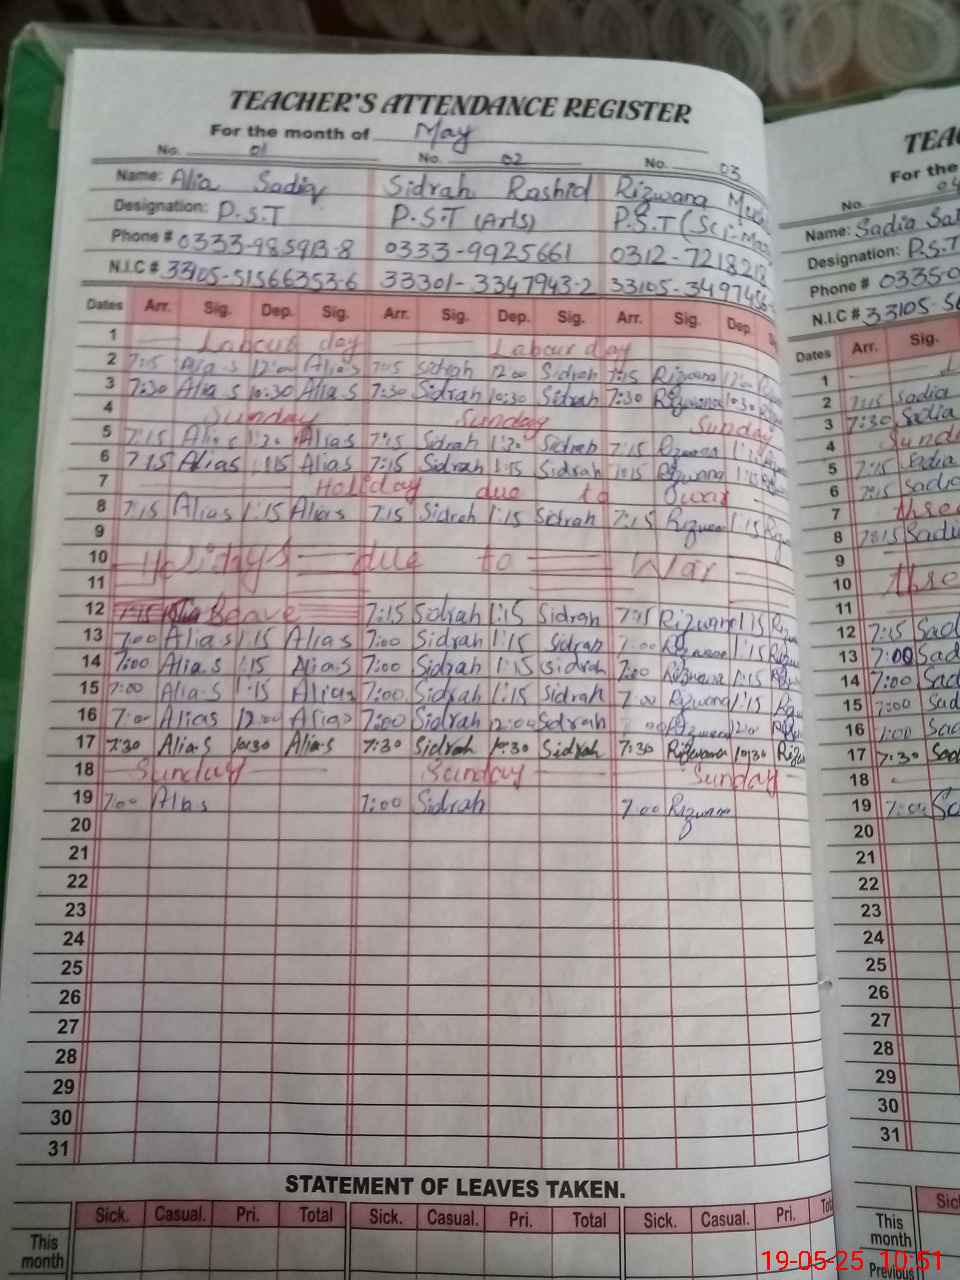 TEACHER'S ATTENDANCE REGISTER
For the month of May
No. 01 No. 02 No. 03
Name: Alia Sadiq Sidrah Rashid Rizwana
Designation: P.S.T P.S.T (Arts) P.S.T (Sci-Ma
Phone # 0333-985913-8 0333-9925661 0312-721821
N.I.C # 33105-51566353-6 33301-3347943-2 33105-349745
Dates Arr. Sig. Dep. Sig. Arr. Sig. Dep. Sig. Arr. Sig. Dep.
1 Labour day Labour day
2 7:15 Alia.s 12:00 Alia.s 7:15 Sidrah 12:00 Sidrah 7:15 Rizwana 12:00
3 7:30 Alia.s 10:30 Alia.s 7:30 Sidrah 10:30 Sidrah 7:30 Rizwana 10:30
4 Sunday Sunday Sunday
5 7:15 Alia.s 1:20 Alias 7:15 Sidrah 1:20 Sidrah 7:15 Rizwana
6 7:15 Alias 1:15 Alias 7:15 Sidrah 1:15 Sidrah Rizwana 1:15
7 Holiday due to war
8 7:15 Alias 1:15 Alias 7:15 Sidrah 1:15 Sidrah 7:15 Rizwan 1:15
9
10 Holidays due to War
11
12 7:15 7:15 Sidrah 1:15 Sidrah 7:15 Rizwana 1:15
13 7:00 Alia.s 1:15 Alia.s 7:00 Sidrah 1:15 Sidrah 7:00 Rizwana 1:15
14 7:00 Alia.s 1:15 Alia.s 7:00 Sidrah 1:15 Sidrah 7:00 Rizwana 1:15
15 7:00 Alia.s 1:15 Alias 7:00 Sidrah 1:15 Sidrah 7:00 Rizwana 1:15
16 7:00 Alias 12:00 Alias 7:00 Sidrah 12:00 Sidrah Rizwana 12:00
17 7:30 Alia.s 10:30 Alia.s 7:30 Sidrah 10:30 Sidrah 7:30 Rizwana 10:30
18 Sunday Sunday Sunday
19 7:00 Alias 7:00 Sidrah 7:00 Rizwana
20
21
22
23
24
25
26
27
28
29
30
31
STATEMENT OF LEAVES TAKEN.
Sick. Casual. Pri. Total Sick. Casual. Pri. Total Sick. Casual. Pri.
This month
TEA
For the
No. 04
Name: Sadia Sa
Designation: P.S.T
Phone # 0335-0
N.I.C # 33105-5
Dates Arr. Sig.
1
2 7:15 Sadia
3 7:30 Sadia
4 Sund
5 7:15 Sadia
6 7:15 Sadia
7
8 7:15 Sadi
9
10
11
12 7:15 Sad
13 7:00 Sad
14 7:00 Sad
15 7:00 Sad
16 7:00 Sad
17 7:30 Sad
18
19 7:00 Sa
20
21
22
23
24
25
26
27
28
29
30
31
Sic
This month
Previous
19-05-25 10:51